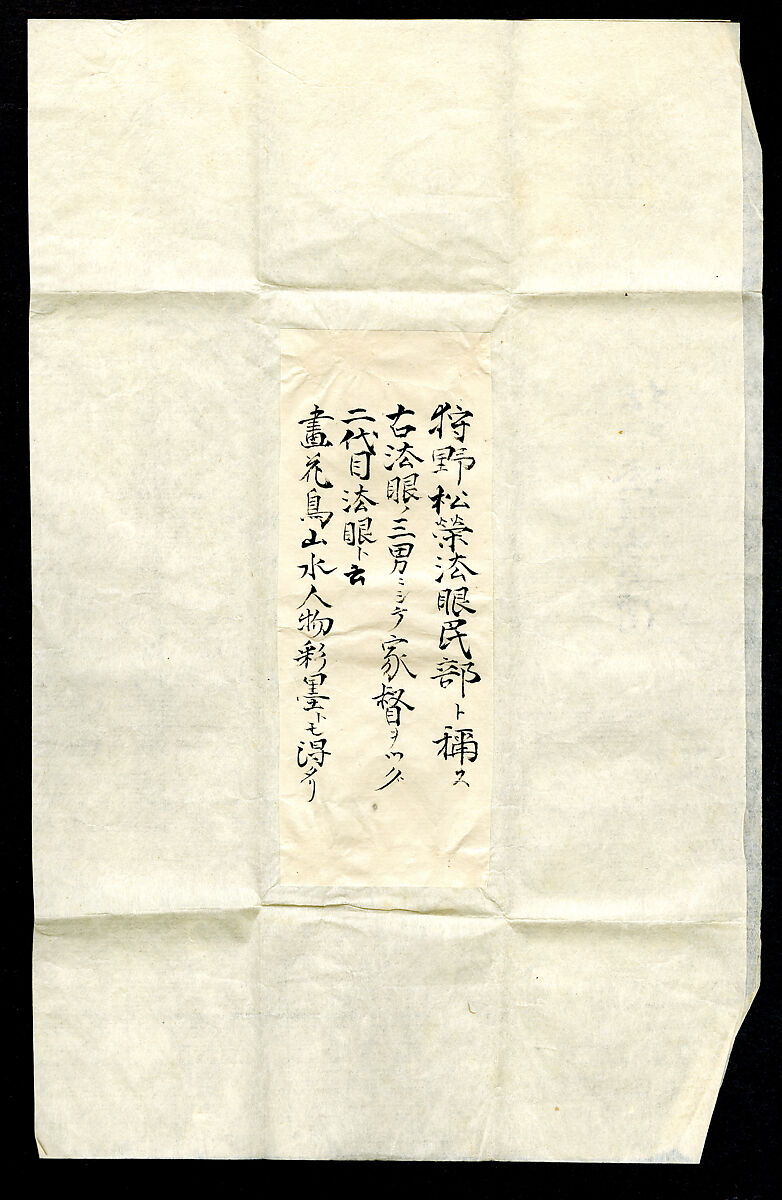 狩野松榮法眼民部ト稱ス
古法眼ノ三男ニシテ家督ヲツグ
二代目法眼ト云
畫花鳥山水人物彩墨トモ得タリ